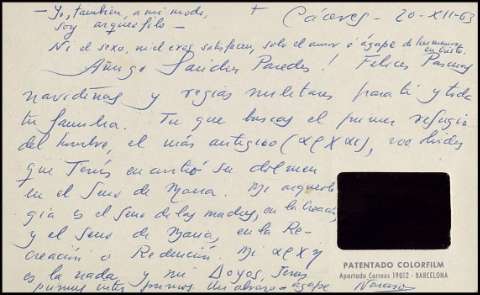 - Yo, también, a mi modo,
soy arqueófilo -
+ Cáceres - 20-XII-63
- Ni el sexo, ni el eros satisfacen, solo el amor o ágape de hermanos
en Cristo.
¡Amigo Sánchez Paredes! Felices Pascuas
navideñas y regias militares para tí y toda
tu familia. Tú que buscas el primer refugio
del hombre, el más antiguo (αρχαι), no olvides
que Jesús encontró su dolmen
en el Seno de María. Mi arqueolo
gía es el Seno de las madres, en la Creación,
y el Seno de María, en la Re-
creación o Redención. Mi αρχη
es la nada, y mi Logos, Jesús
un abrazo - ágape
PATENTADO COLORFILM
Apartado Correos 19012 - BARCELONA